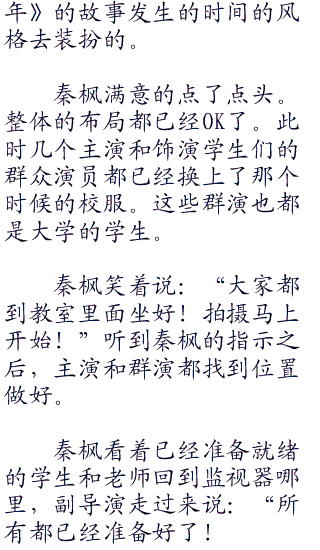 年》的故事发生的时间的风
格去装扮的。
秦枫满意的点了点头。
整体的布局都已经OK了。此
时几个主演和饰演学生们的
群众演员都已经换上了那个
时候的校服。这些群演也都
是大学的学生。
秦枫笑着说：“大家都
到教室里面坐好！拍摄马上
开始！”听到秦枫的指示之
后，主演和群演都找到位置
做好。
秦枫看着已经准备就绪
的学生和老师回到监视器哪
里，副导演走过来说：“所
有都已经准备好了！